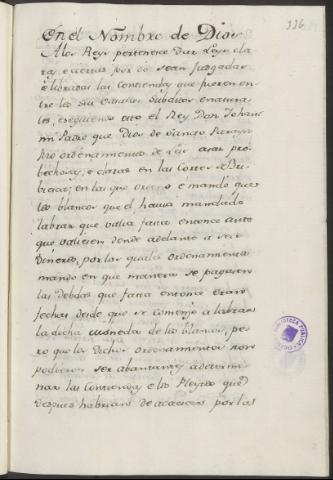 336.
En el Nombre de Dios
A los Reys pertenece Dar Leys cla
ras, e ciertas por do sean Juzgadas
e libradas las Contiendas que fueren en
tre los sus Vasallos Subditos e natura
les, e seguiendo esto el Rey Don Johan
mi Padre que Dios dè Sancto Parayso
fizo ordenamiento de Leys asaz pro
bechosas, e claras en las Cortes de Bri
biesca, en las que ordeno e mandò que
los blancos que el havia mandado
labrar que valia fasta entonce
que valiesen dende adelante a seis
Dineros, por los quales ordenamientos
mando en que manera se pagasen
las Debdas que fasta entonce eran
fechas desde que se comenzo a labrar
la dicha moneda de los blancos, pe
ro que los Dichos ordenamientos non
podieron ser abantantes a determi
nar las Contiendas e los Pleytos que
despues habrian de acaescer por las